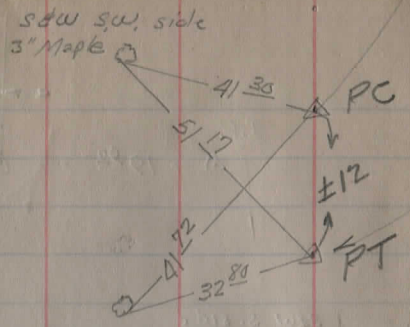 S&W S.W. side
3" Maple
41 30
PC
51 17
±12
41 72
PT
32 80